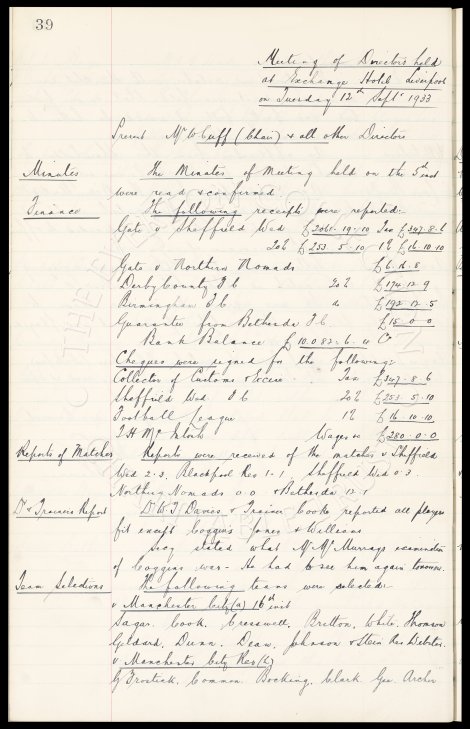 39
Meeting of Directors held
at Exchange Hotel Liverpool
on Tuesday 12th Sept. 1933
Present Mr W Cuff (Chair) & all other Directors
Minutes The Minutes of Meeting held on the 5th inst
were read & confirmed.
Finance The following receipts were reported:-
Gate v Sheffield Wed £2061-19-10 Tax £347-8-6
20% £253-5-10 1% £16-10-10
Gate v Northern Nomads £6-16-8
Derby County F.C 20% £174-12-9
Birmingham F.C do £192-12-5
Guarantee from Bethesda F.C. £15-0-0
Bank Balance £10,082-6-11 Cr
Cheques were signed for the following:-
Collector of Customs & Excise Tax £347-8-6
Sheffield Wed F.C 20% £253-5-10
Football League 1% £16-10-10
T.H. McIntosh Wages &c £280-0-0
Reports of Matches Reports were received of the matches v Sheffield
Wed 2-3, Blackpool Res 1-1, Sheffield Wed 0-3
Northern Nomads 0-0 & Bethesda
Dr & Trainers Report Dr W.F. Davies & Trainer Cooke reported all players
fit except Coggins Jones & Williams
Secy stated what Mr McMurrays examination
of Coggins was - He had to see him again tomorrow.
Team Selections The following teams were selected:-
v Manchester City (a) 16th inst
Sagar, Cook, Cresswell, Britton, White, Thomson
Geldard, Dunn, Dean, Johnson & Stein Res Webster.
v Manchester City Res (h)
Common Bocking, Clark Gee Archer